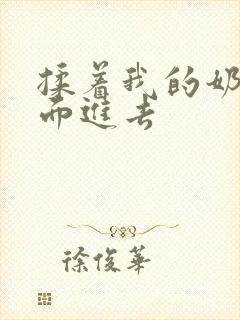 揉着我的奶
而進去
徐俊華